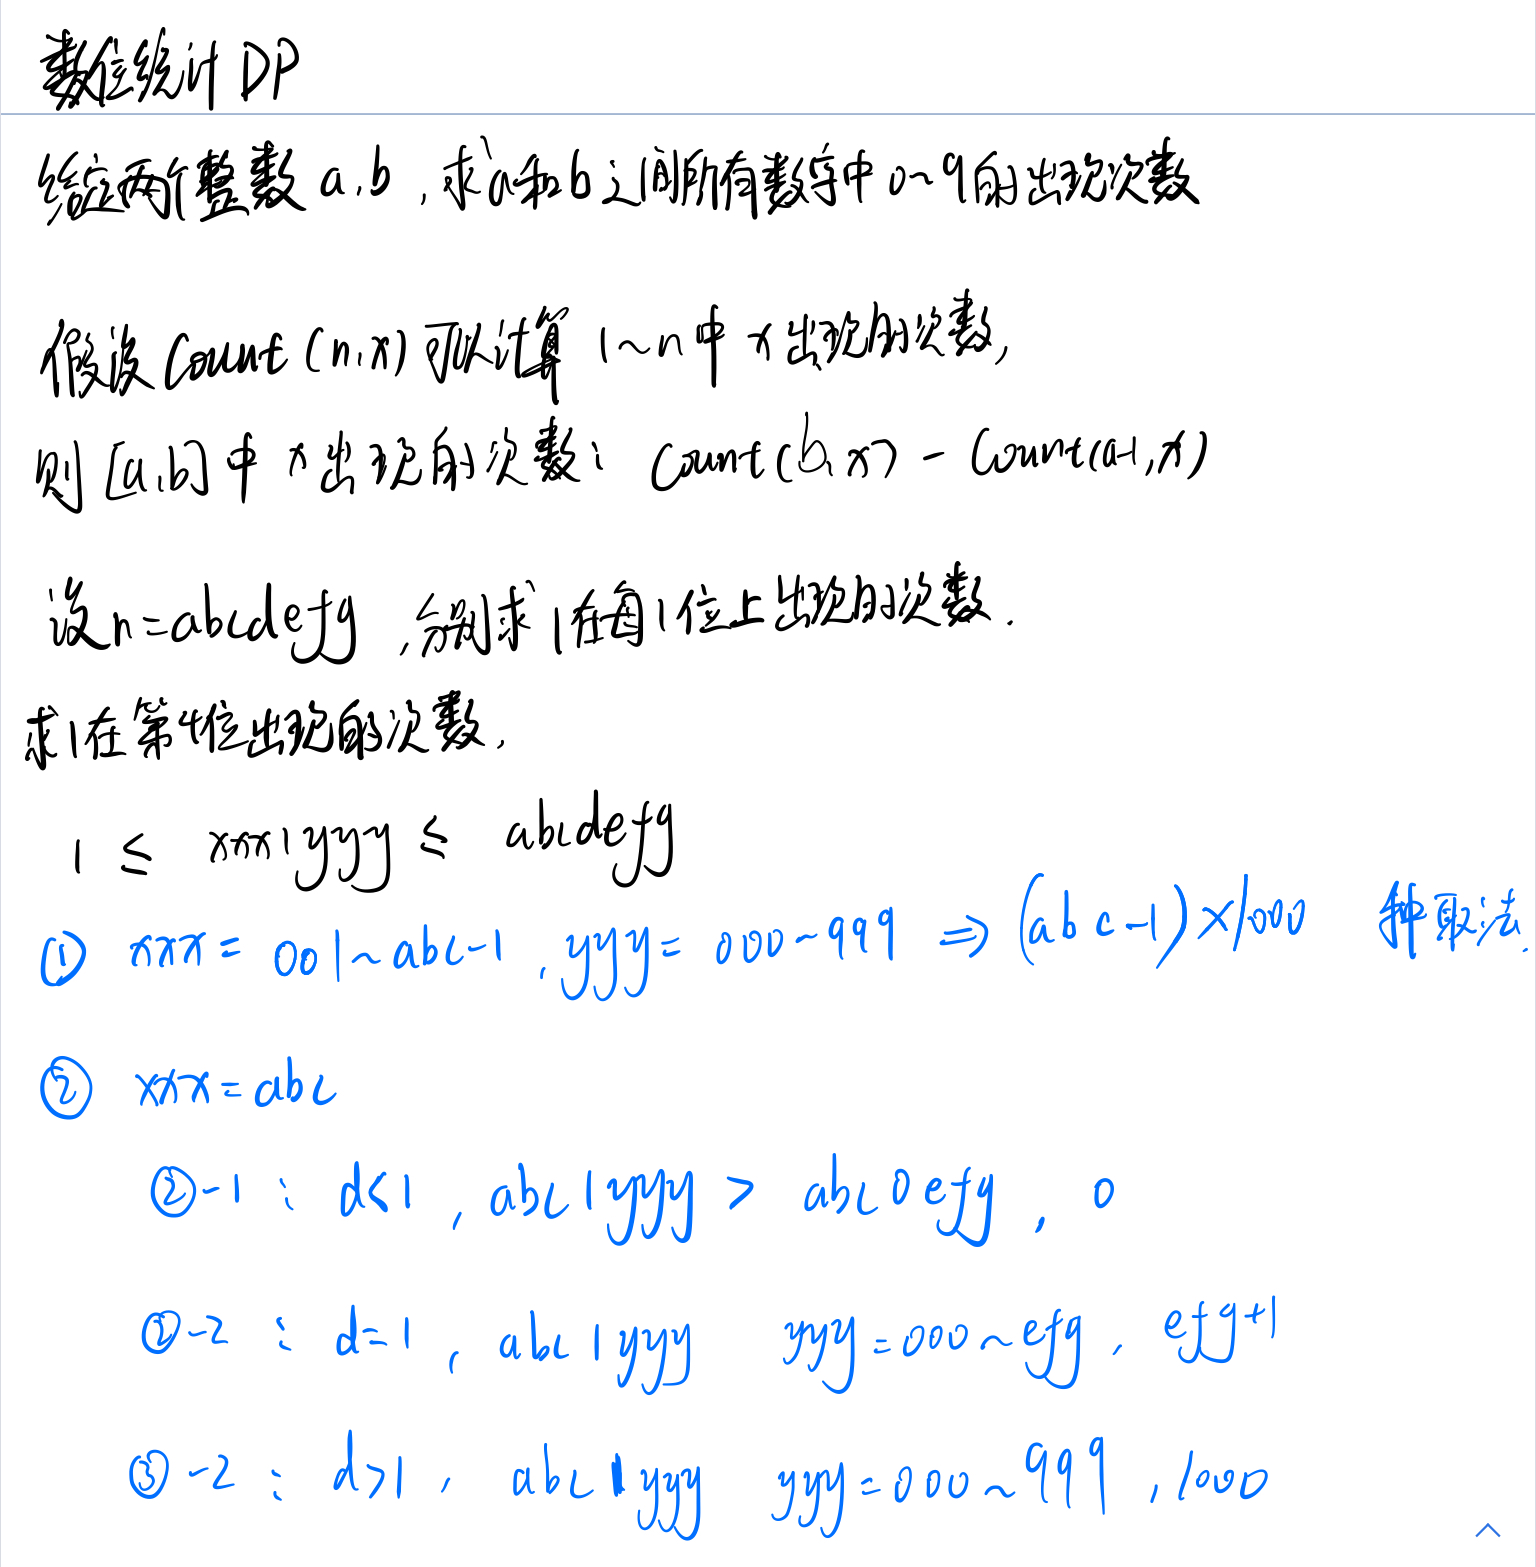 数位统计DP
给定两个整数a,b,求a和b之间所有数字中0~9的出现次数
假设count(n,x)可以计算1~n中x出现的次数,
则[a,b]中x出现的次数: count(b,x) - count(a-1,x)
设n=abcdefg,分别求1在每1位上出现的次数.
求1在第4位出现的次数.
1 ≤ xxx1yyy ≤ abcdefg
① xxx = 001~abc-1, yyy = 000~999 ⇒ (abc-1)×1000 种取法.
② xxx=abc
②-1: d<1, abc1yyy > abc0efg, 0
②-2: d=1, abc1yyy yyy=000~efg, efg+1
③-2: d>1, abc1yyy yyy=000~999, 1000